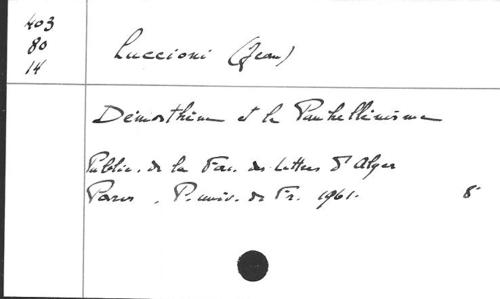 403
80
14
Luccioni (Jean)
Démosthène et le Panhellénisme
Public. de la Fac. des Lettres d'Alger
Paris, P. univ. de Fr. 1961. 8°